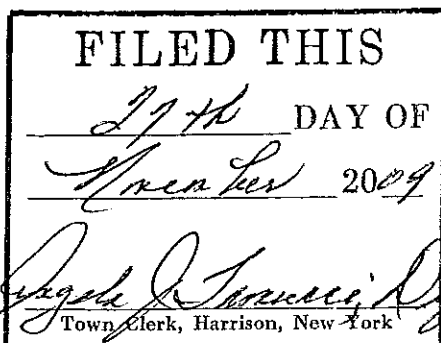 FILED THIS
27th DAY OF
November 2009
Angela J.
Town Clerk, Harrison, New York